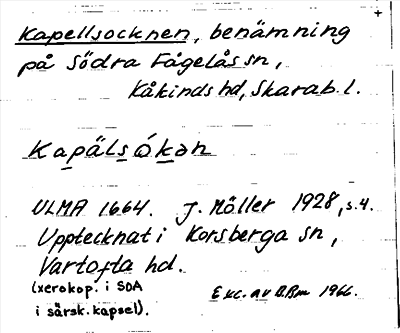 +
Kapellsocknen, benämning
på Södra Fågelås sn,
Kåkinds hd, Skarab. l.
Kapälsókən
ULMA 1664. J. Möller 1928, s. 4.
Upptecknat i Korsberga sn,
Vartofta hd.
(xerokop. i SOA
i särsk. kapsel).
Exc. av B.Bm 1966.